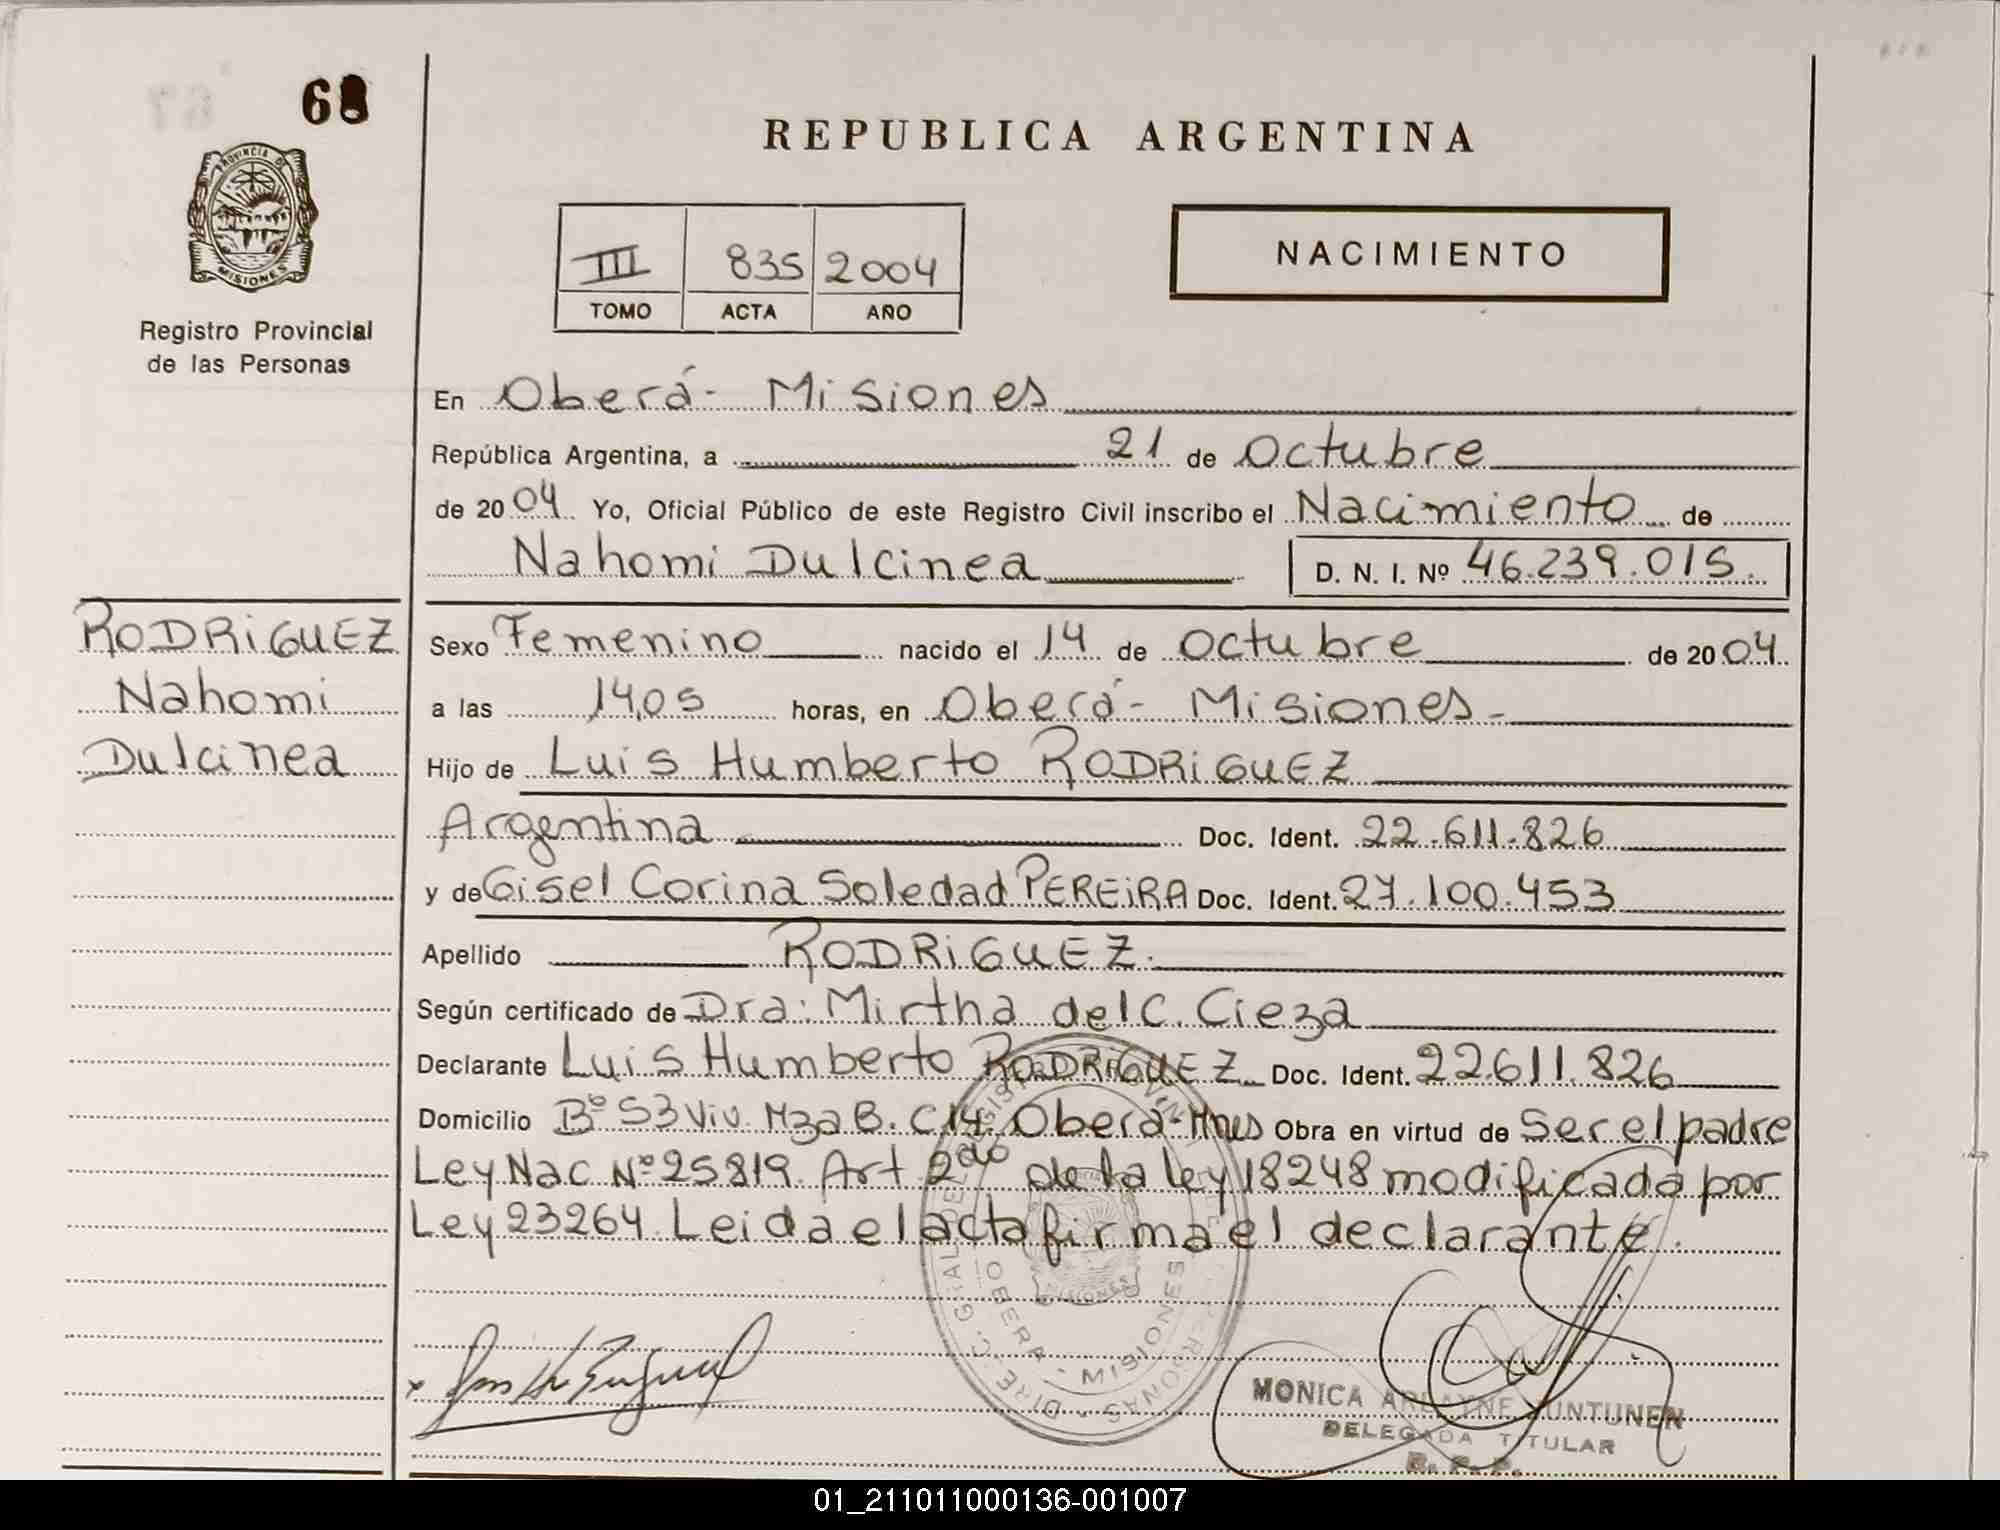 68
PROVINCIA DE
MISIONES
Registro Provincial
de las Personas
REPUBLICA ARGENTINA
III 835 2004
TOMO ACTA AÑO
NACIMIENTO
En Oberá - Misiones
República Argentina, a 21 de Octubre
de 2004 Yo, Oficial Público de este Registro Civil inscribo el Nacimiento de
Nahomi Dulcinea D. N. I. Nº 46.239.015.
RODRIGUEZ
Nahomi
Dulcinea
Sexo Femenino nacido el 14 de Octubre de 2004.
a las 14,05 horas, en Oberá - Misiones -
Hijo de Luis Humberto RODRIGUEZ
Argentina Doc. Ident. 22.611.826
y de Gisel Corina Soledad PEREIRA Doc. Ident. 27.100.453
Apellido RODRIGUEZ.
Según certificado de Dra: Mirtha del C. Cieza
Declarante Luis Humberto RODRIGUEZ Doc. Ident. 22.611.826
Domicilio Bº 53 Viv. Mza B. C 14. Oberá - Mnes Obra en virtud de Ser el padre
Ley Nac Nº 25819. Art 2do de la ley 18248 modificada por
Ley 23264. Leida el acta firma el declarante.
OBERA - MISIONES
MONICA ARLAYNE KUNTUNEN
DELEGADA TITULAR
R. P. P.
01_211011000136-001007